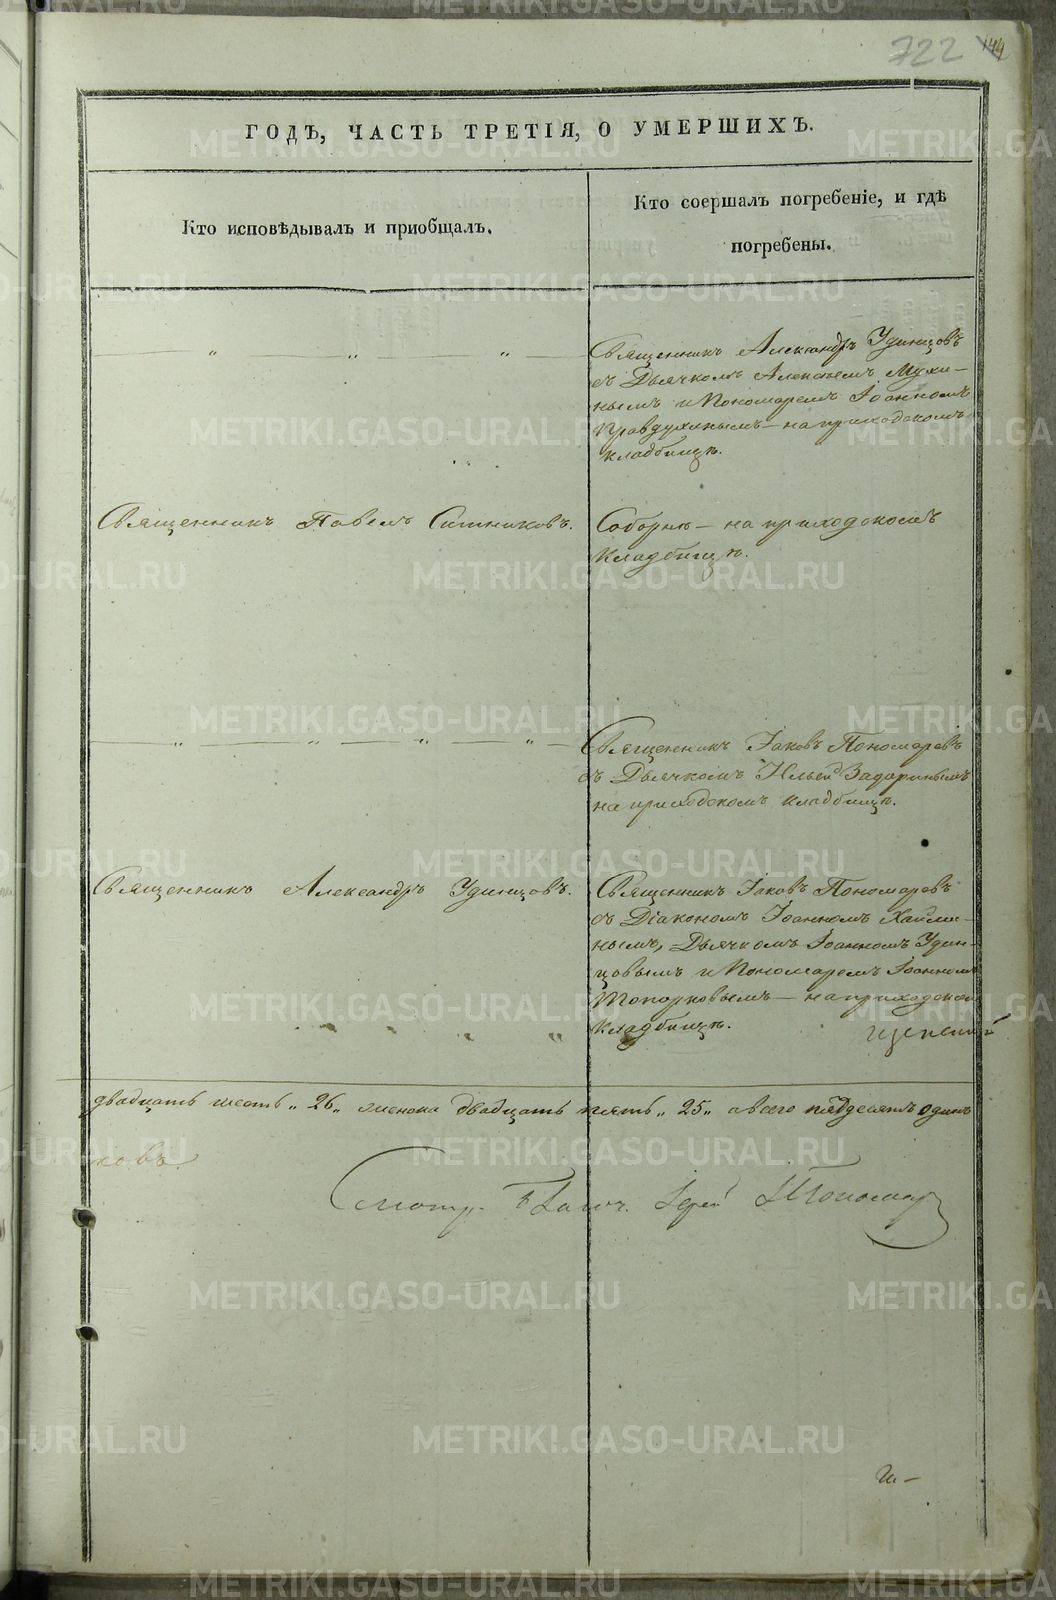 722 144
ГОДЪ, ЧАСТЬ ТРЕТІЯ, О УМЕРШИХЪ.
Кто исповѣдывалъ и пріобщалъ.
Кто соершалъ погребеніе, и гдѣ
погребены.
Священникъ Александръ Удинцовъ
съ Дьячкомъ Алексѣемъ Мухи-
нымъ и Пономаремъ Іоанномъ
Правдухинымъ — на приходскомъ
кладбищѣ.
Священникъ Павелъ Ситниковъ.
Соборнѣ — на приходскомъ
кладбищѣ.
Священникъ Іаковъ Пономаревъ
съ Дьячкомъ Ильей Задоринымъ
на приходскомъ кладбищѣ.
Священникъ Александръ Удинцовъ.
Священникъ Іаковъ Пономаревъ
съ Діакономъ Іоанномъ Хайми-
нымъ, Дьячкомъ Іоанномъ Удин-
цовымъ и Пономаремъ Іоанномъ
Топорковымъ — на приходском
кладбищѣ.
двадцать шесть „26„ женска двадцать пять „25„ а всего пятдесятъ одинъ
ковъ.
Смотр. Благоч. Іерей Пономар
METRIKI.GASO-URAL.RU